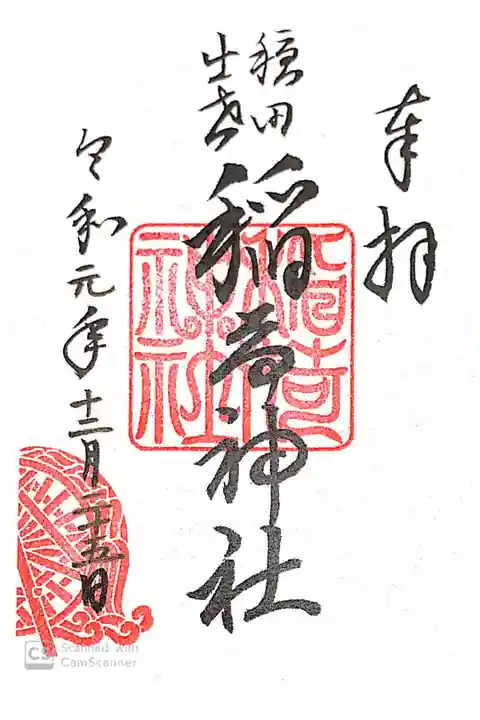 奉拝
田
出世
稲荷神社
令和元年十二月二十五日
稲荷
神社
CS Scanned with
CamScanner